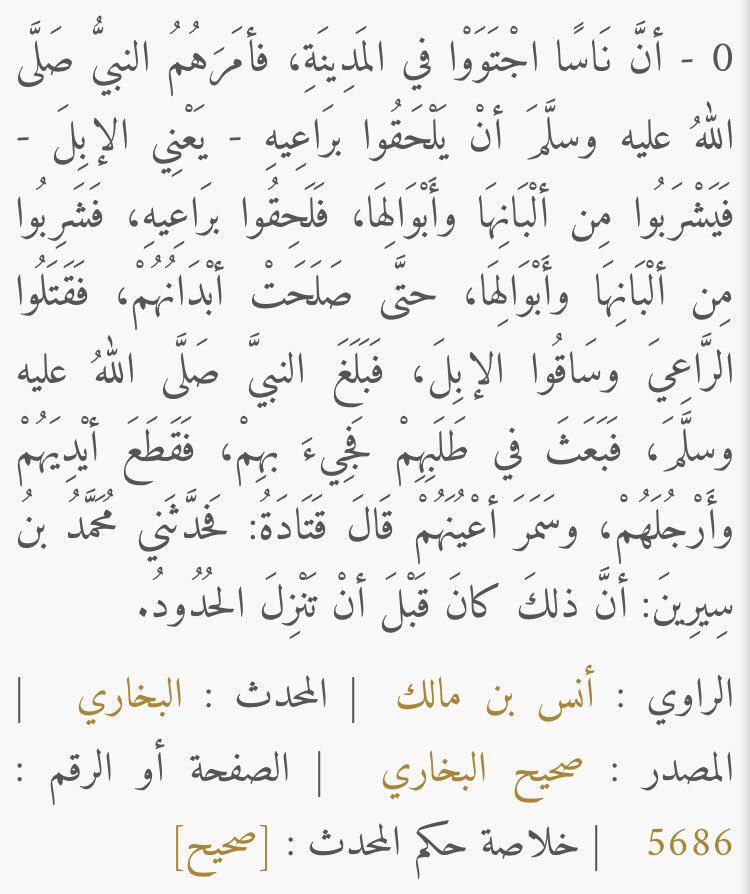 0 - أنَّ نَاسًا اجْتَوَوْا في المَدِينَةِ، فأمَرَهُمُ النبيُّ صَلَّى
اللهُ عليه وسلَّمَ أنْ يَلْحَقُوا برَاعِيهِ - يَعْنِي الإبِلَ -
فَيَشْرَبُوا مِن ألْبَانِهَا وأَبْوَالِهَا، فَلَحِقُوا برَاعِيهِ، فَشَرِبُوا
مِن ألْبَانِهَا وأَبْوَالِهَا، حتَّى صَلَحَتْ أبْدَانُهُمْ، فَقَتَلُوا
الرَّاعِيَ وسَاقُوا الإبِلَ، فَبَلَغَ النبيَّ صَلَّى اللهُ عليه
وسلَّمَ، فَبَعَثَ في طَلَبِهِمْ فَجِيءَ بهِمْ، فَقَطَعَ أيْدِيَهُمْ
وأَرْجُلَهُمْ، وسَمَرَ أعْيُنَهُمْ قَالَ قَتَادَةُ: فَحدَّثَني مُحَمَّدُ بنُ
سِيرِينَ: أنَّ ذلكَ كانَ قَبْلَ أنْ تَنْزِلَ الحُدُودُ.
الراوي : أنس بن مالك | المحدث : البخاري |
المصدر : صحيح البخاري | الصفحة أو الرقم :
5686 | خلاصة حكم المحدث : [صحيح]